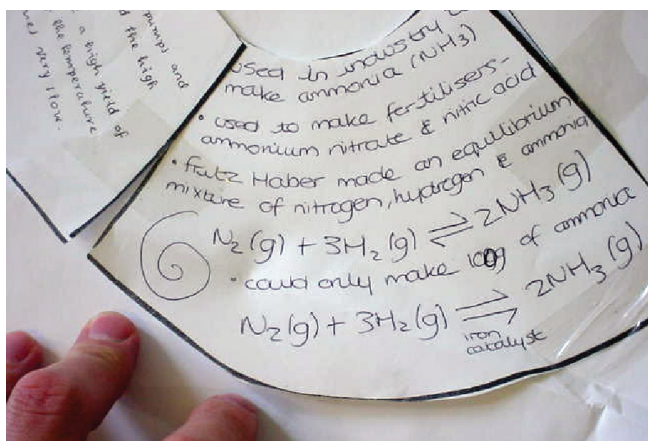 pumps and
the high
a high yield of
the temperature
very slow.
used in industry
make ammonia (NH3)
• used to make fertilisers -
ammonium nitrate & nitric acid
• Fritz Haber made an equilibrium
mixture of nitrogen, hydrogen & ammonia
N₂(g) + 3H₂(g) ⇌ 2NH₃(g)
• could only make 100g of ammonia
N₂(g) + 3H₂(g) ⇌ 2NH₃(g)
iron
catalyst